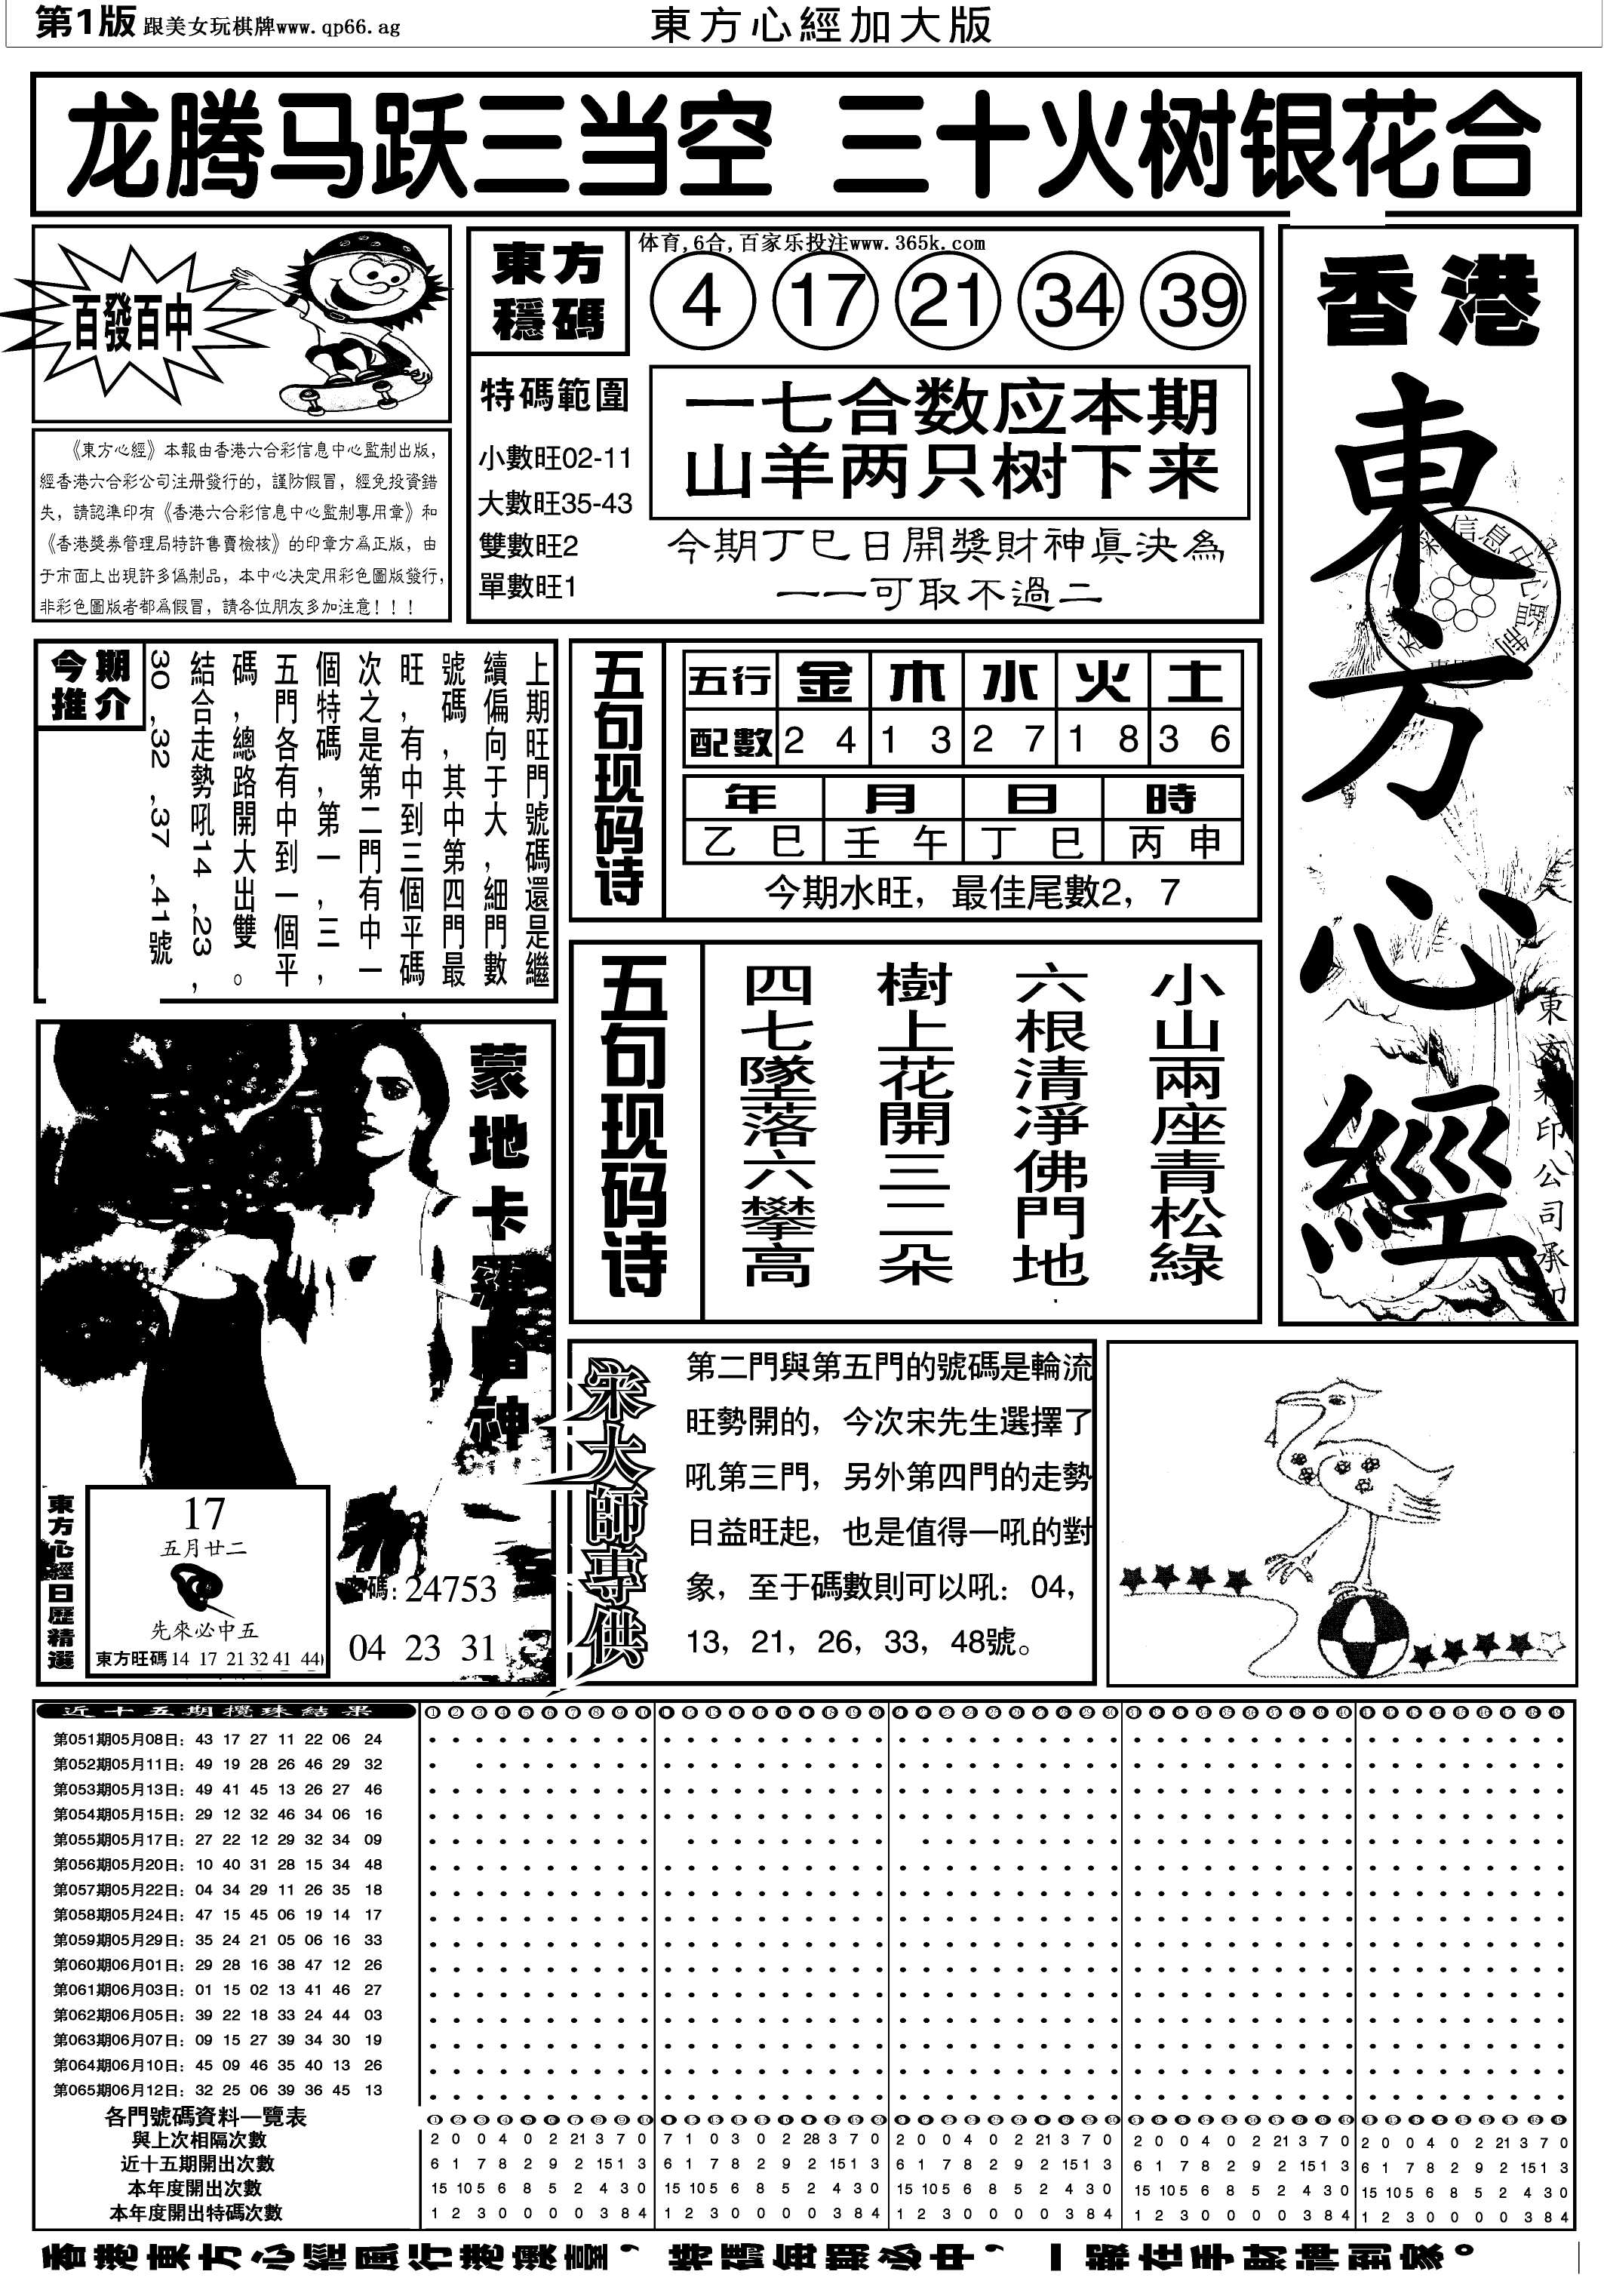 第1版 跟美女玩棋牌www.qp66.ag
東方心經加大版
龙腾马跃三当空 三十火树银花合
百發百中
《東方心經》本報由香港六合彩信息中心監制出版，
經香港六合彩公司注册發行的，謹防假冒，經免投資錯
失，請認準印有《香港六合彩信息中心監制專用章》和
《香港獎券管理局特許售賣檢核》的印章方為正版，由
于市面上出現許多偽制品，本中心决定用彩色圖版發行，
非彩色圖版者都為假冒，請各位朋友多加注意！！！
東方
穩碼
体育,6合,百家乐投注www.365k.com
4 17 21 34 39
特碼範圍
小數旺02-11
大數旺35-43
雙數旺2
單數旺1
一七合数应本期
山羊两只树下来
今期丁巳日開獎財神真決為
一一可取不過二
香港
東方心經
東方彩印公司承印
今期
推介
上期旺門號碼還是繼
續偏向于大，細門數
號碼，其中第四門最
旺，有中到三個平碼，
次之是第二門有中一
個特碼，第一，三，
五門各有中到一個平
碼，總路開大出雙。
結合走勢吼14,23,
30,32,37,41號
五句现码诗
五行 金 木 水 火 土
配數 2 4 1 3 2 7 1 8 3 6
年 月 日 時
乙巳 壬午 丁巳 丙申
今期水旺，最佳尾數2，7
五句现码诗
小山兩座青松綠
六根清淨佛門地
樹上花開三二朵
四七墜落六攀高
蒙地卡羅賭神
東方心經日歷精選
17
五月廿二
先來必中五
東方旺碼 14 17 21 32 41 44
密碼：24753
04 23 31
宋大師專供
第二門與第五門的號碼是輪流
旺勢開的，今次宋先生選擇了
吼第三門，另外第四門的走勢
日益旺起，也是值得一吼的對
象，至于碼數則可以吼：04，
13，21，26，33，48號。
近十五期攪珠結果
第051期05月08日：43 17 27 11 22 06 24
第052期05月11日：49 19 28 26 46 29 32
第053期05月13日：49 41 45 13 26 27 46
第054期05月15日：29 12 32 46 34 06 16
第055期05月17日：27 22 12 29 32 34 09
第056期05月20日：10 40 31 28 15 34 48
第057期05月22日：04 34 29 11 26 35 18
第058期05月24日：47 15 45 06 19 14 17
第059期05月29日：35 24 21 05 06 16 33
第060期06月01日：29 28 16 38 47 12 26
第061期06月03日：01 15 02 13 41 46 27
第062期06月05日：39 22 18 33 24 44 03
第063期06月07日：09 15 27 39 34 30 19
第064期06月10日：45 09 46 35 40 13 26
第065期06月12日：32 25 06 39 36 45 13
各門號碼資料一覽表
與上次相隔次數 2 0 0 4 0 2 21 3 7 0 7 1 0 3 0 2 28 3 7 0 2 0 0 4 0 2 21 3 7 0 2 0 0 4 0 2 21 3 7 0 2 0 0 4 0 2 21 3 7 0
近十五期開出次數 6 1 7 8 2 9 2 15 1 3 6 1 7 8 2 9 2 15 1 3 6 1 7 8 2 9 2 15 1 3 6 1 7 8 2 9 2 15 1 3 6 1 7 8 2 9 2 15 1 3
本年度開出次數 15 10 5 6 8 5 2 4 3 0 15 10 5 6 8 5 2 4 3 0 15 10 5 6 8 5 2 4 3 0 15 10 5 6 8 5 2 4 3 0 15 10 5 6 8 5 2 4 3 0
本年度開出特碼次數 1 2 3 0 0 0 0 3 8 4 1 2 3 0 0 0 0 3 8 4 1 2 3 0 0 0 0 3 8 4 1 2 3 0 0 0 0 3 8 4 1 2 3 0 0 0 0 3 8 4
香港東方心經風行港澳臺，特碼每期必中，一報在手財神到家。